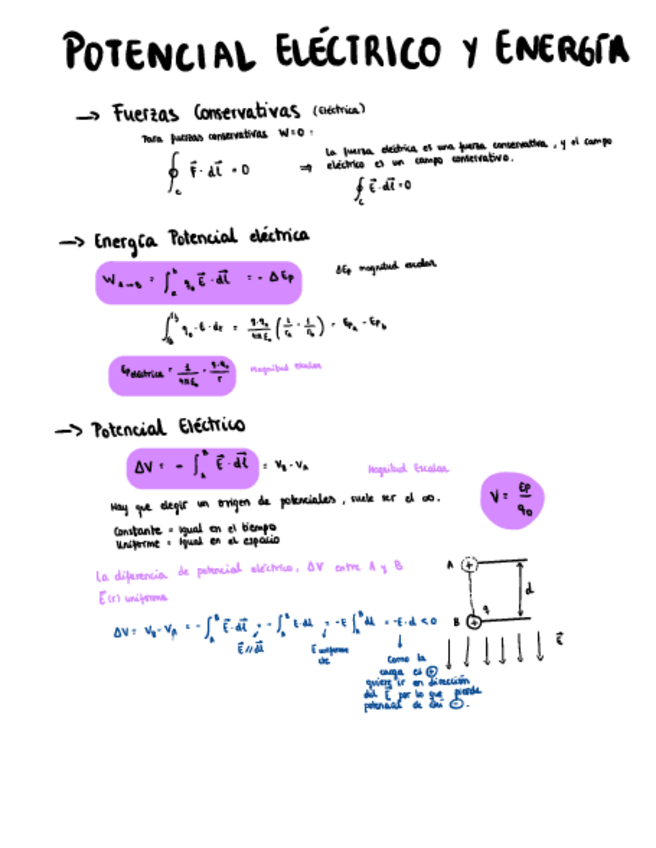 POTENCIAL ELÉCTRICO Y ENERGÍA
→ Fuerzas Conservativas (Eléctrica)
Para fuerzas conservativas W=0 :
∮c F⃗ · dl⃗ = 0
⇒ La fuerza eléctrica es una fuerza conservativa, y el campo
eléctrico es un campo conservativo.
∮c E⃗ · dl⃗ = 0
→ Energía Potencial eléctrica
W A→B = ∫ q₀ E⃗ · dl⃗ = - Δ Ep
ΔEp magnitud escalar
∫ q₀ · E · dr = q·q₀/4πε₀ (1/rₐ - 1/r_b) = Epₐ - Ep_b
Ep eléctrica = 1/4πε₀ · q·q₀/r
Magnitud escalar
→ Potencial Eléctrico
ΔV = - ∫_A^B E⃗ · dl⃗ = V_B - V_A
Magnitud Escalar
V = Ep/q₀
Hay que elegir un origen de potenciales, suele ser el ∞.
Constante = igual en el tiempo
Uniforme = igual en el espacio
La diferencia de potencial eléctrico, ΔV entre A y B
E⃗(r) uniforme
A +
d
B + q
E⃗
ΔV = V_B - V_A = - ∫_A^B E⃗ · dl⃗ = - ∫_A^B E · dl = -E ∫_A^B dl = -E · d < 0
E⃗ // dl⃗
E uniforme
cte
Como la
carga es ⊕
quiere ir en dirección
del E⃗ por lo que pierde
potencial de ahí ⊖.